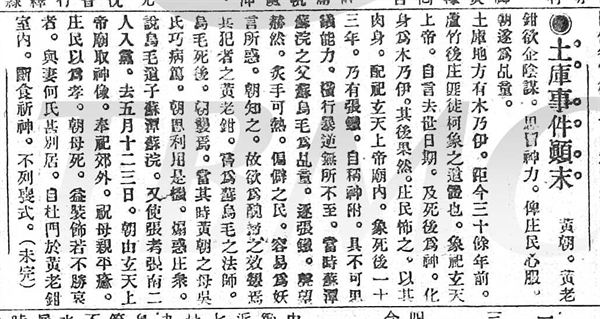 ●土庫事件顛末　黃朝。黃老
鉗欲企陰謀。思冒神力。俾庄民心服。
朝遂為乩童。
土庫地方有木乃伊。距今三十餘年前。
蘆竹後庄匪徒柯象之遺骸也。象祀玄天
上帝。自言去世日期。及死後為神。化
身為木乃伊。其後果然。庄民怖之。以其
肉身。配祀玄天上帝廟內。象死後一十
三年。乃有張鐵。自稱神附。具不可思
議能力。橫行暴逆無所不至。當時蘇潭
蘇浣之父蘇烏毛為乩童。逐張鐵。聲望
赫然。炙手可熱。偏僻之民。容易為妖
言所惑。朝知之。故欲為
其犯者之黃老鉗。嘗為蘇烏毛之法師。
烏毛死後。朝襲為。當其時黃朝之母吳
氏巧病篤。朝思利用是機。煽惑庄眾。
說烏毛遺子蘇潭蘇浣。又使張考張南二
人入黨。去五月十二三日。朝由玄天上
帝廟取神像。奉祀郊外。祝母親平癒。
庄民以為孝。朝母死。益裝飾若不勝哀
者。與妻何氏甚別居。自杜門於黃老鉗
室內。斷食祈神。不列喪式。（未完）